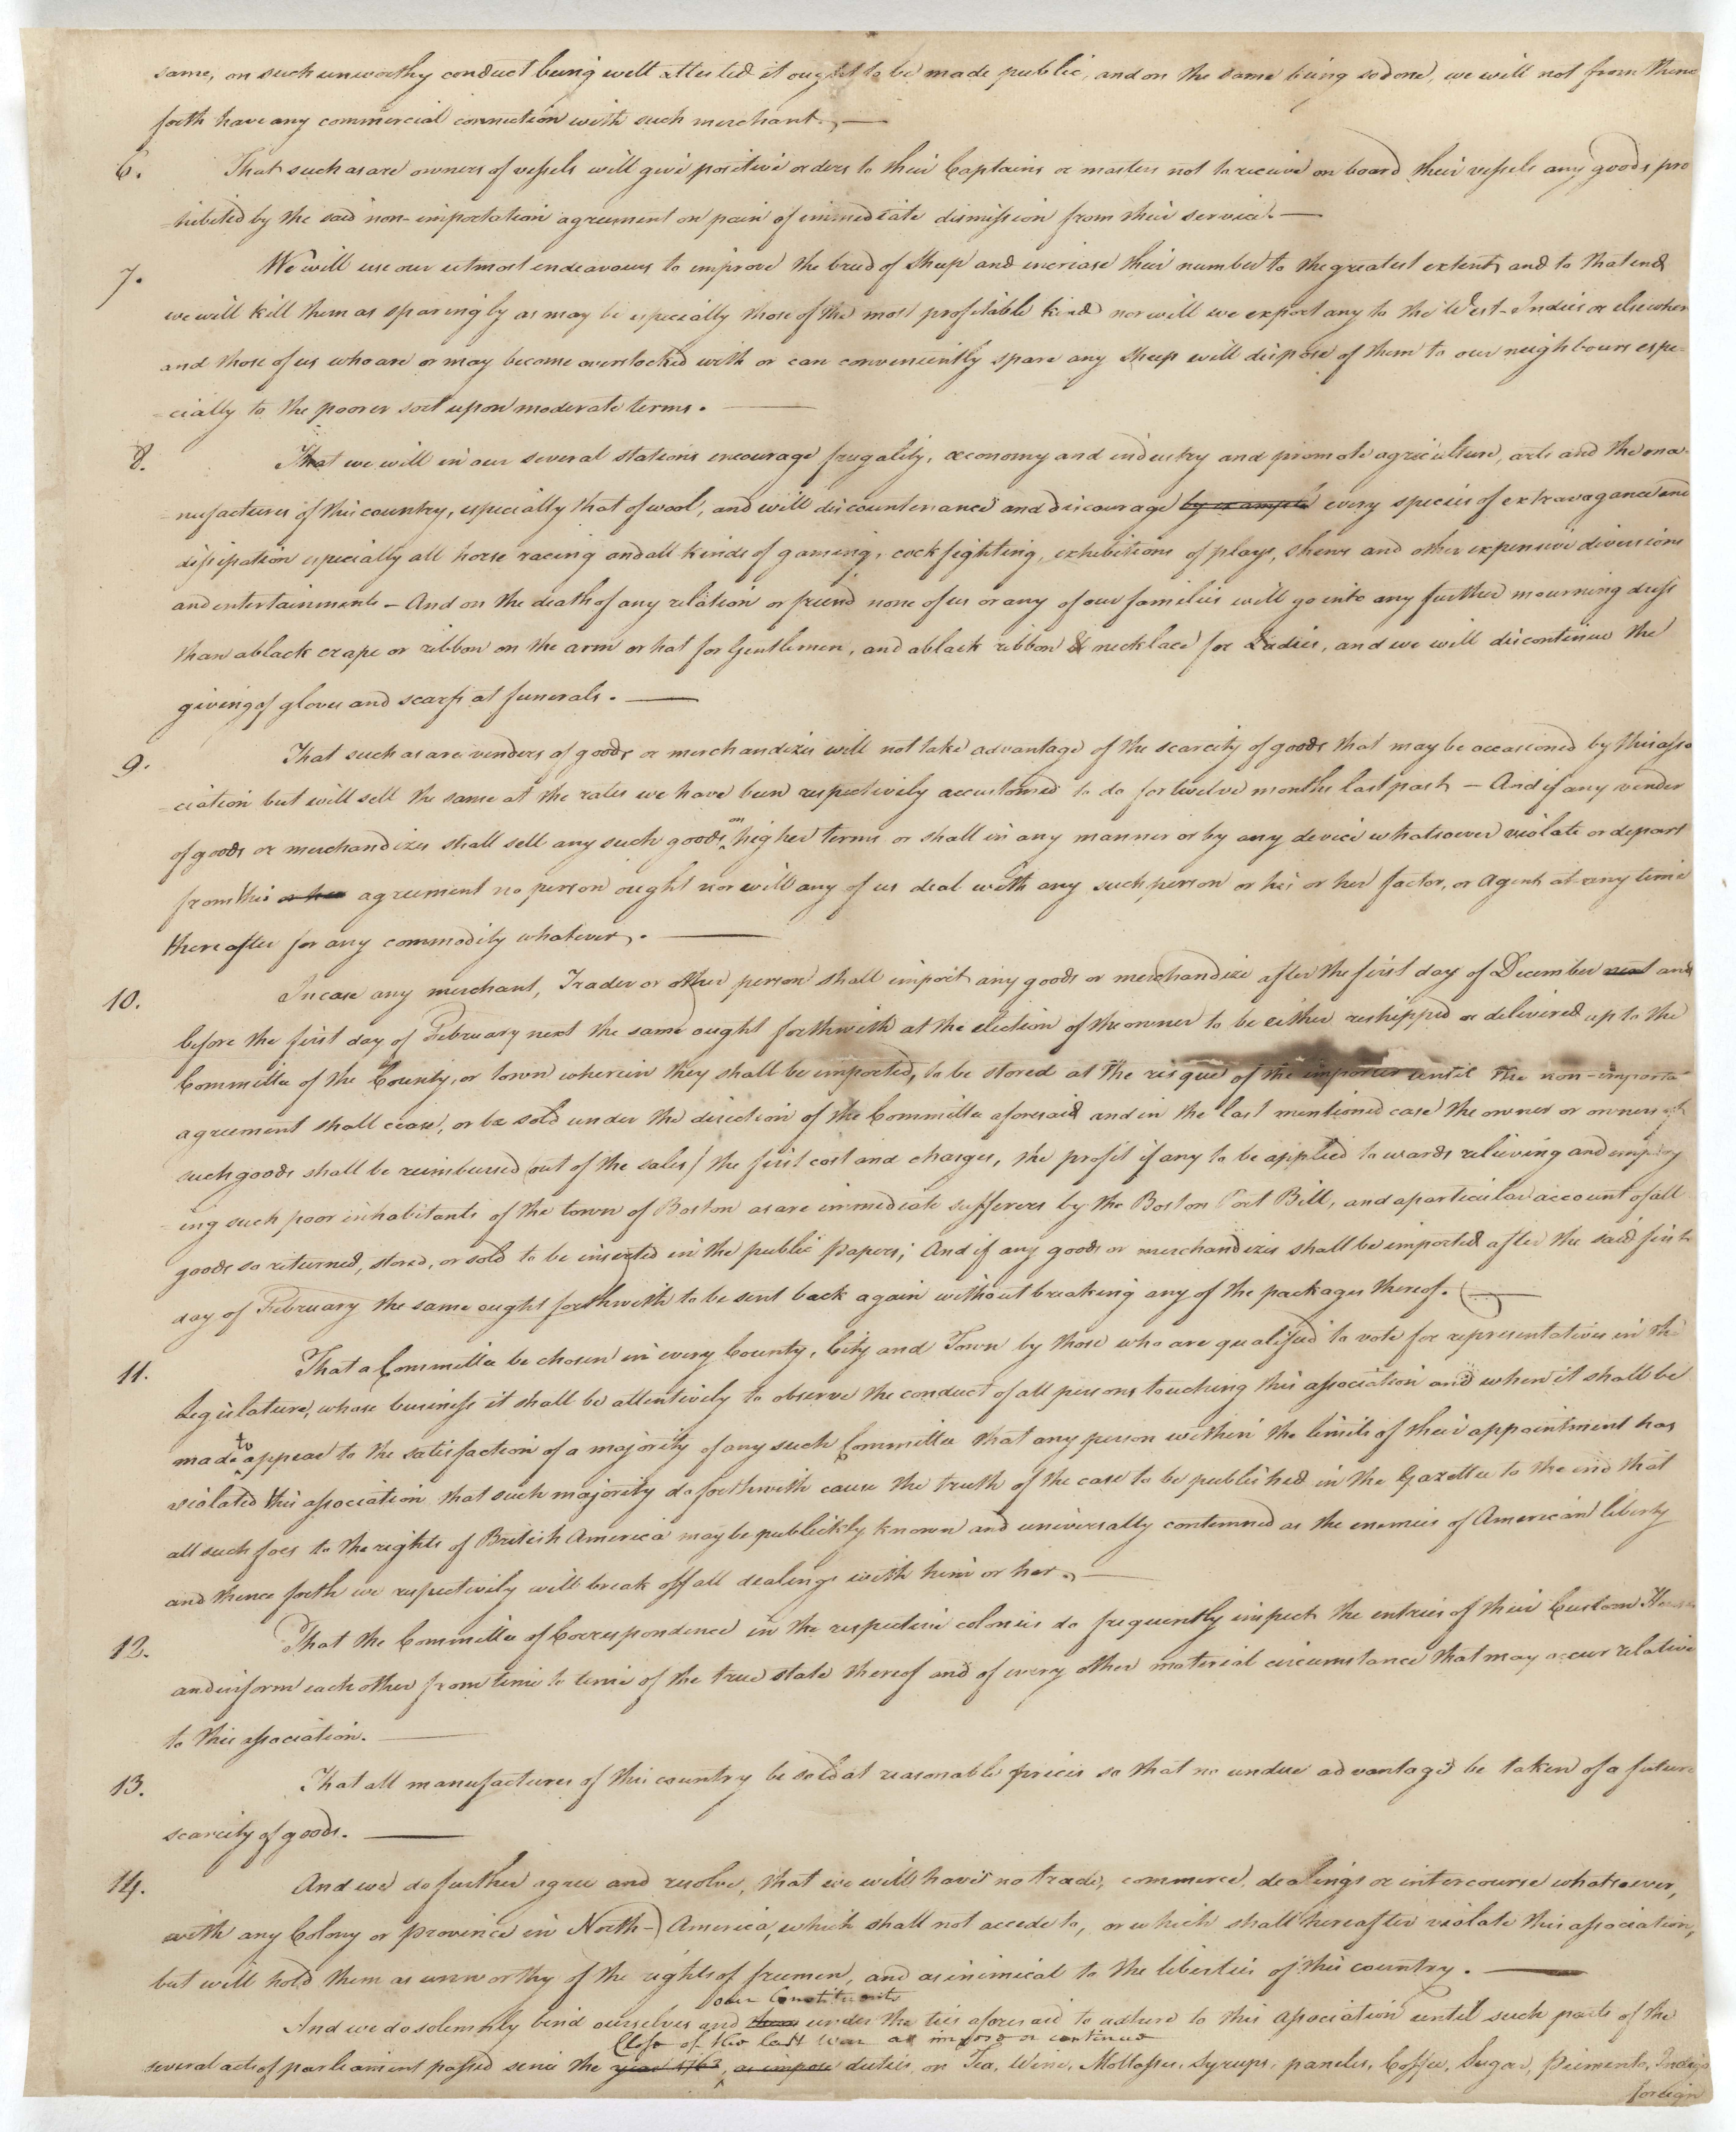 same, on such unworthy conduct being well attested it ought to be made public, and on the same being so done, we will not from thence
forth have any commercial connection with such merchant. —
6. That such as are owners of vessels will give positive orders to their Captains or masters not to receive on board their vessels any goods pro
=hibited by the said non-importation agreement on pain of immediate dismission from their service. —
7. We will use our utmost endeavours to improve the breed of Sheep and increase their number to the greatest extent, and to that end
we will kill them as sparingly as may be especially those of the most profitable kind nor will we export any to the West-Indies or elsewhere
and those of us who are or may become overstocked with or can conveniently spare any Sheep will dispose of them to our neighbours espe=
=cially to the poorer sort upon moderate terms. —
8. That we will in our several stations encourage frugality, œconomy and industry and promote agriculture, arts and the ma=
=nufactures of this country, especially that of wool, and will discountenance and discourage by example every species of extravagance and
dissipation especially all horse racing and all kinds of gaming, cock fighting, exhibitions of plays, shews and other expensive diversions
and entertainments – And on the death of any relation or friend none of us or any of our families will go into any further mourning dress
than a black crape or ribbon on the arm or hat for Gentlemen, and a black ribbon & necklace for Ladies, and we will discontinue the
giving of gloves and scarfs at funerals. —
9. That such as are venders of goods or merchandizes will not take advantage of the scarcity of goods that may be occasioned by this asso
=ciation but will sell the same at the rates we have been respectively accustomed to do for twelve months last past – And if any vender
of goods or merchandizes shall sell any such goods on higher terms or shall in any manner or by any device whatsoever violate or depart
from this or her agreement no person ought nor will any of us deal with any such person or his or her factor, or Agent, at any time
thereafter for any commodity whatever. —
10. In case any merchant, Trader or other person shall import any goods or merchandize after the first day of December next and
before the first day of February next the same ought forthwith at the election of the owner to be either reshipped or delivered up to the
Committee of the County, or town wherein they shall be imported, to be stored at the risque of the importer until the non-importa
agreement shall cease, or be sold under the direction of the Committee aforesaid and in the last mentioned case the owner or owners of
such goods shall be reimbursed (out of the sales) the first cost and charges, the profit if any to be applied towards relieving and employ
=ing such poor inhabitants of the town of Boston as are immediate sufferers by the Boston Port Bill, and a particular account of all
goods so returned, stored, or sold to be inserted in the public papers; And if any goods or merchandizes shall be imported after the said first
day of February the same ought forthwith to be sent back again without breaking any of the packages thereof. —
11. That a Committee be chosen in every County, City and Town by those who are qualified to vote for representatives in the
Legislature, whose business it shall be attentively to observe the conduct of all persons touching this association and when it shall be
made to appear to the satisfaction of a majority of any such Committee that any person within the limits of their appointment has
violated this association that such majority do forthwith cause the truth of the case to be published in the Gazette to the end that
all such foes to the rights of British America may be publickly known and universally contemned as the enemies of American liberty
and thence forth we respectively will break off all dealings with him or her. —
12. That the Committee of Correspondence in the respective colonies do frequently inspect the entries of their Custom House
and inform each other from time to time of the true state thereof and of every other material circumstance that may occur relative
to this association. —
13. That all manufactures of this country be sold at reasonable prices so that no undue advantage be taken of a future
scarcity of goods. —
14. And we do further agree and resolve, that we will have no trade, commerce, dealings or intercourse whatsoever,
with any Colony or province in North-America, which shall not accede to, or which shall hereafter violate this association,
but will hold them as unworthy of the rights of freemen, and as inimical to the liberties of this country. —
our Constituents
And we do solemnly bind ourselves and them under the ties aforesaid to adhere to this Association until such parts of the
Close of the last war as impose or continue
several acts of parliament passed since the year 1763, as impose duties, on Tea, Wine, Mollasses, Syrups, paneles, Coffee, Sugar, Pimento, Indigo
foreign